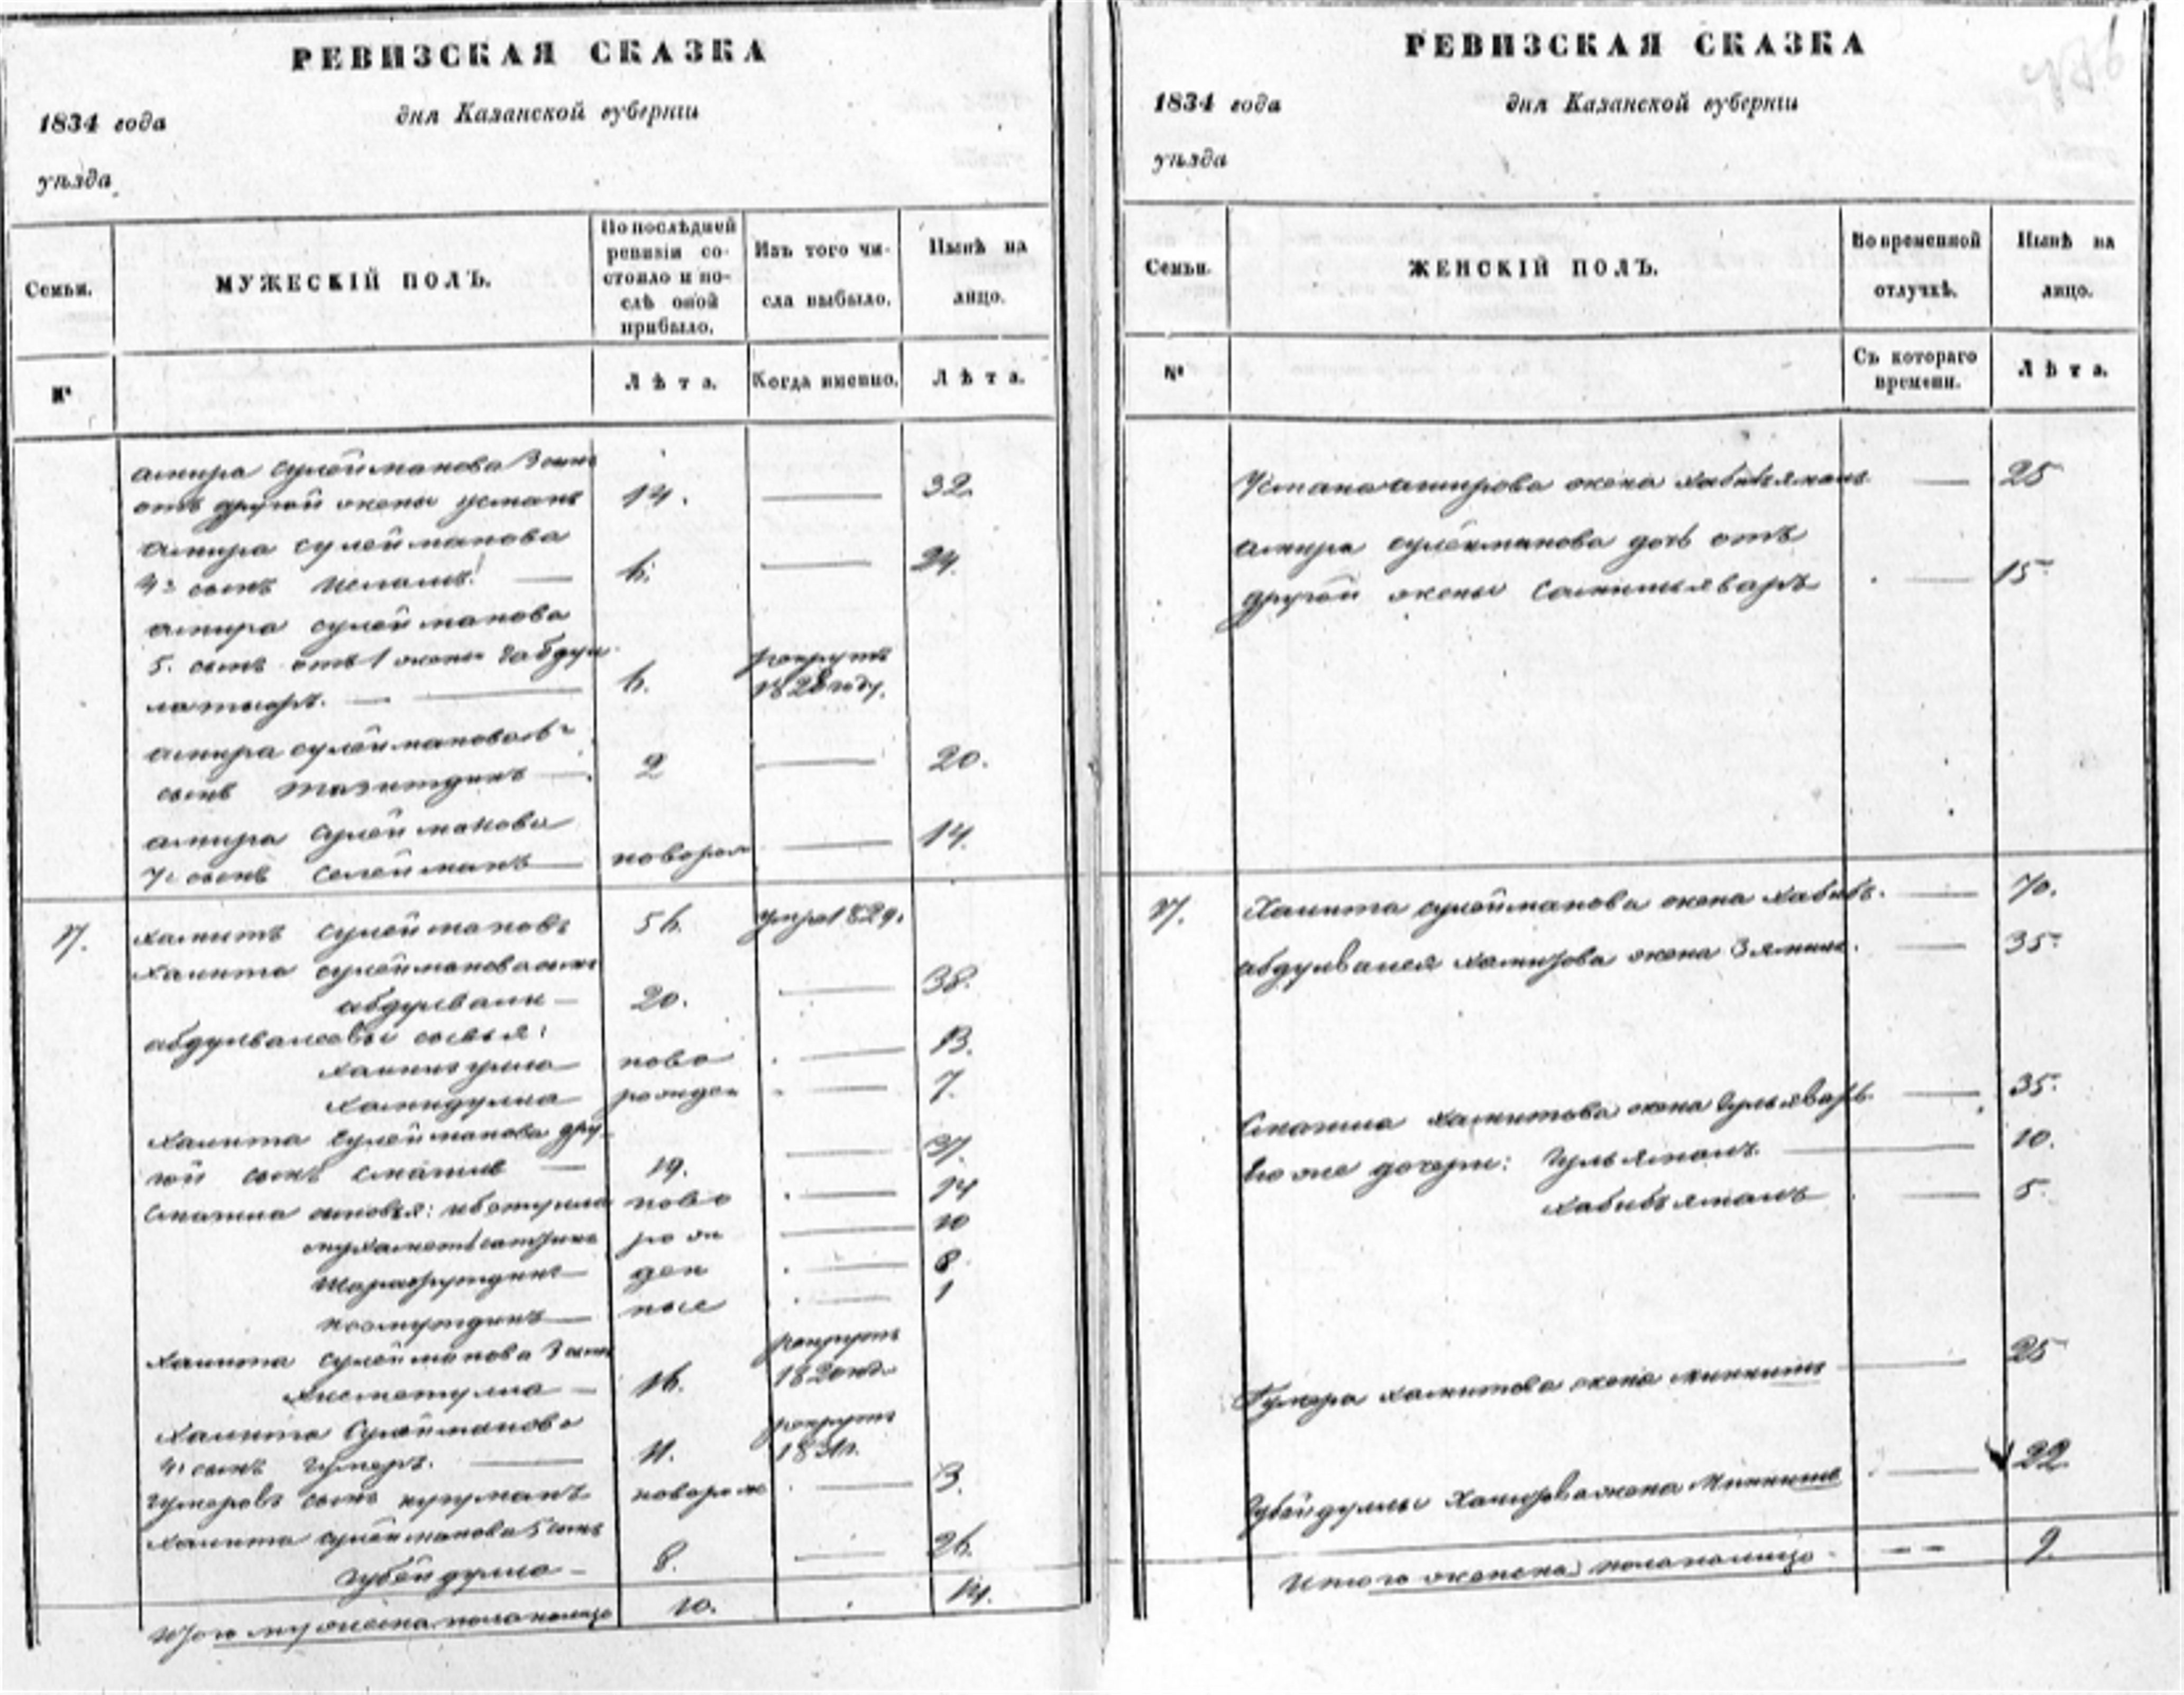 РЕВИЗСКАЯ СКАЗКА
1834 года
дня Казанской губерніи
уѣзда
Семьи.
МУЖЕСКІЙ ПОЛЪ.
По послѣдней ревизіи состояло и послѣ оной прибыло.
Изъ того числа выбыло.
Нынѣ на лицо.
№
Лѣта.
Когда именно.
Лѣта.
амира сулейманова 3 сынъ
отъ другой жены усманъ 14. 32.
амира сулейманова
4й сынъ исламъ 6. 24.
амира сулейманова
5. сынъ отъ 1 жены габдул рекрутъ
6. 1828 году.
амира сулейманова 6й
сынъ 2 20.
амира сулейманова
7й сынъ селейманъ новорож 14.
7. хамитъ сулеймановъ 56. умре 1829.
хамита сулейманова сынъ
абдулвали 20. 38.
абдулвалеевы сыновья:
ново 13.
хамидулла рожден 7.
хамита сулейманова дру
гой сынъ смагилъ 19. 37.
смагила сыновья: ново 14
рож 10
шарафутдинъ ден 8.
ные 1
хамита сулейманова 3 сынъ рекрутъ
хисметулла 16. 1820
хамита сулейманова рекрутъ
4й сынъ гумеръ. 11. 1831г.
гумеровъ сынъ нугуманъ новорож 3.
хамита сулейманова 5 сынъ
губейдулла 8. 26.
Итого мужеска пола налицо 10. 14.
РЕВИЗСКАЯ СКАЗКА
1834 года
дня Казанской губерніи
уѣзда
Семьи.
ЖЕНСКІЙ ПОЛЪ.
Во временной отлучкѣ.
Нынѣ на лицо.
№
Съ котораго времени.
Лѣта.
Усмана амирова жена хабибямалъ 25
амира сулейманова дочь отъ
другой жены 15
7. Хамита сулейманова жена хабиб. 70.
абдулвалея хамитова жена 35.
Смагила хамитова жена гульяваръ 35.
Его же дочери: гульямалъ 10.
хабибямалъ 5.
Гумера хамитова жена 25
губейдуллы хамитова жена 22
Итого женска пола налицо 9.